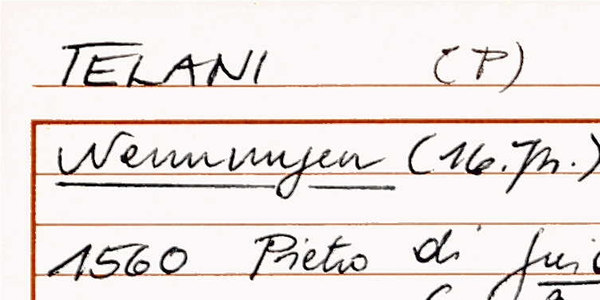 TELANI (P)
Nennungen (16. Jh.)
1560 Pietro di